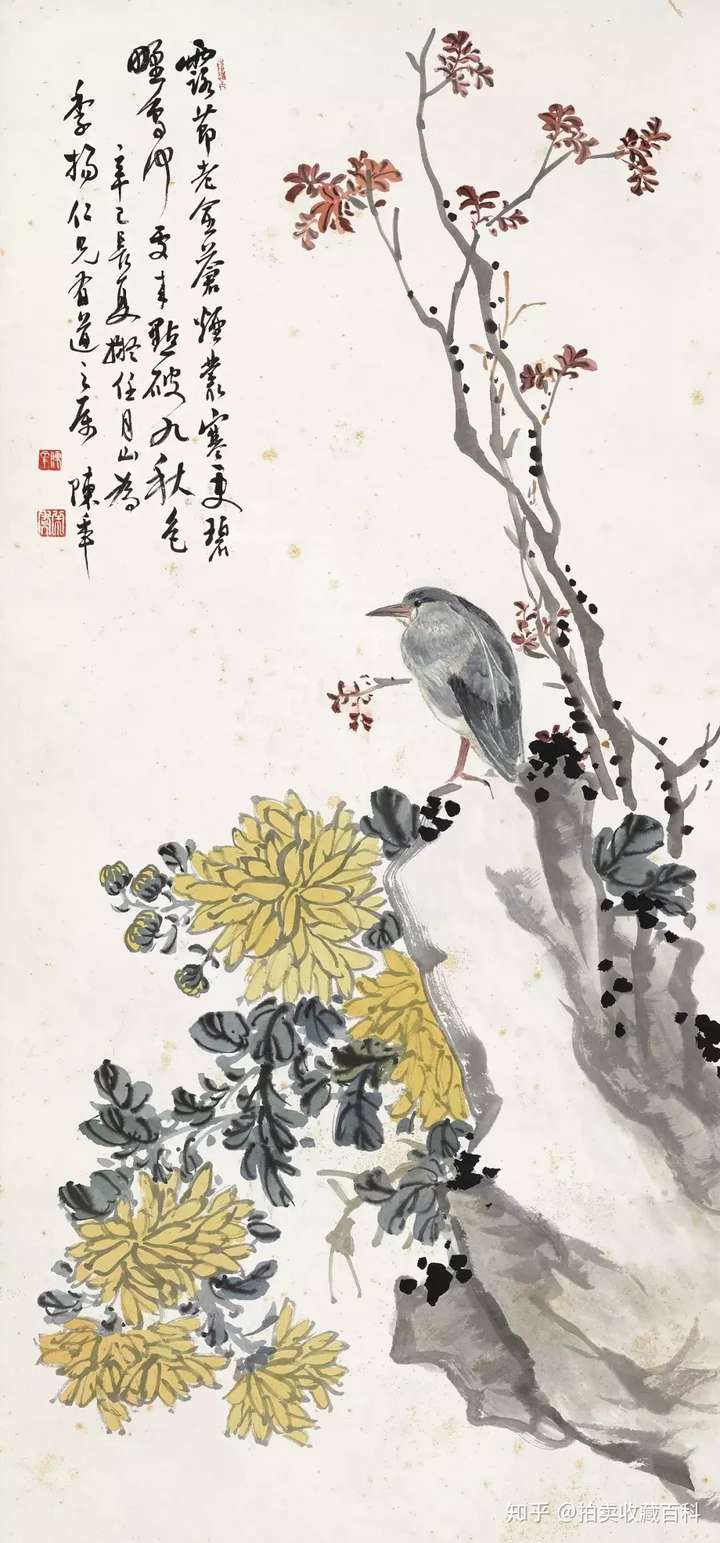 露節老愈蒼煙叢寒更碧
野鳥何處來點破九秋色
辛巳長夏擬任月山為
季揚仁兄有道之屬 陳年
知乎 @拍卖收藏百科